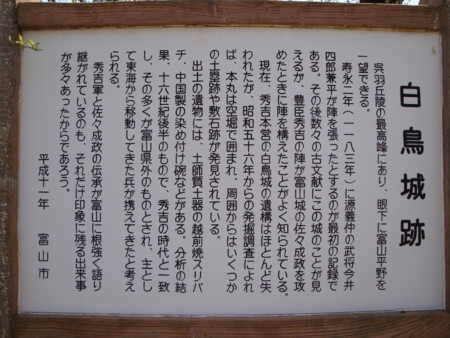 白鳥城跡
呉羽丘陵の最高峰にあり、眼下に富山平野を
一望できる。
寿永二年(一一八三年)に源義仲の武将今井
四郎兼平が陣を張ったとするのが最初の記録で
ある。その後数々の古文献にこの城のことが見
えるが、豊臣秀吉の陣が富山城の佐々成政を攻
めたときに陣を構えたことがよく知られている。
現在、秀吉本営の白鳥城の遺構はほとんど失
われたが、昭和五十六年からの発掘調査によれ
ば、本丸は空堀で囲まれ、周囲からはいくつか
の土塁跡や敷石跡が発見されている。
出土の遺物には、土師質土器の越前焼スリバ
チ、中国製の染め付け碗などがある。分析の結
果、十六世紀後半のもので、秀吉の時代と一致
し、その多くが富山県外のものとされ、主とし
て東海から移動してきた兵が携えてきたと考え
られる。
秀吉軍と佐々成政の伝承が富山に根強く語り
継がれているのも、それだけ印象に残る出来事
が多々あったからであろう。
平成十一年 富山市